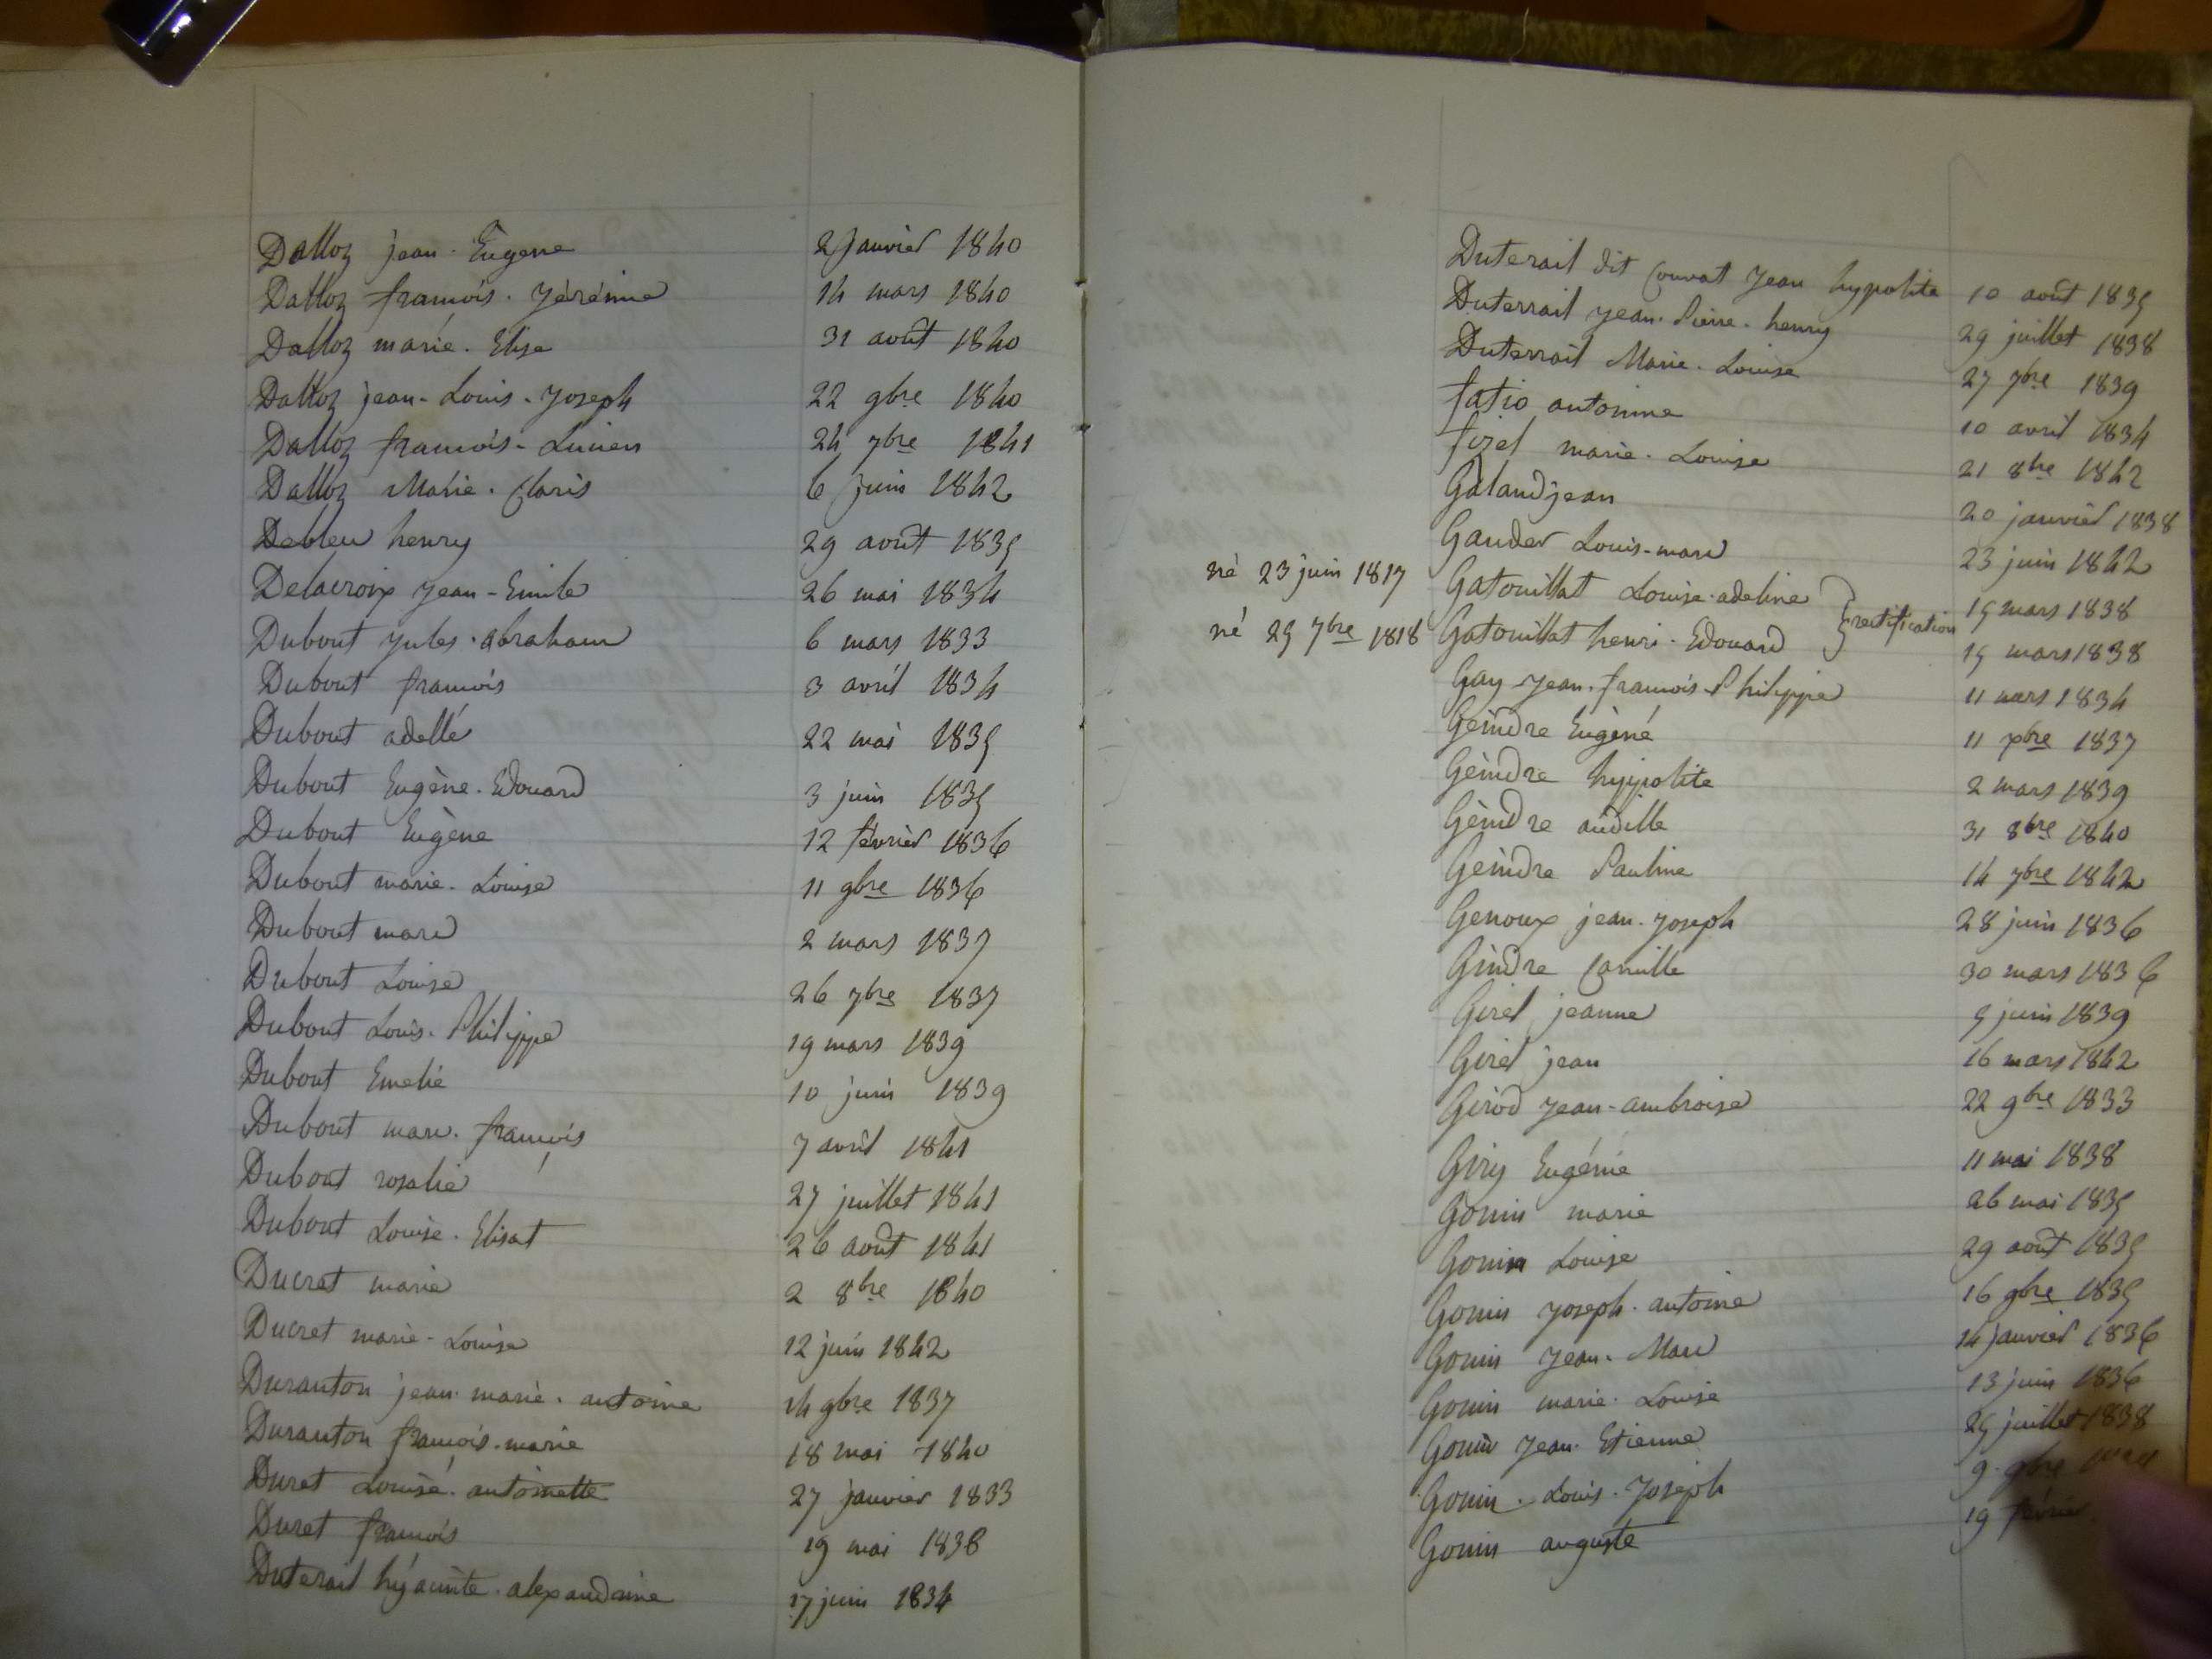 Dalloz jean. Eugene 2 Janvier 1840
Dalloz francois. Jérémie 14 mars 1840
Dalloz marie. Elise 31 août 1840
Dalloz jean. Louis. Joseph 22 9bre 1840
Dalloz francois. Lucien 24 7bre 1841
Dalloz Marie. Claris 6 juin 1842
Debleu henry 29 août 1835
Delacroix Jean-Emile 26 mai 1834
Dubout Jules. abraham 6 mars 1833
Dubout francois 3 avril 1834
Dubout adelle 22 mai 1835
Dubout Eugène. Edouard 3 juin 1835
Dubout Eugène 12 février 1836
Dubout marie. Louise 11 9bre 1836
Dubout marc 2 mars 1837
Dubout Louise 26 7bre 1837
Dubout Louis. Philippe 19 mars 1839
Dubout Emelie 10 juin 1839
Dubout marc. francois 7 avril 1841
Dubout rosalie 27 juillet 1841
Dubout Louise. Elisat 26 août 1841
Ducret marie 2 8bre 1840
Ducret marie-Louise 12 juin 1842
Duranton jean. marie. antoine 14 9bre 1837
Duranton francois. marie 18 mai 1840
Duret Louise. antoinette 27 janvier 1833
Duret francois 19 mai 1838
Duterail hyacinte. alexandrine 17 juin 1834
Duterail dit Couvat Jean hypolite 10 août 1835
Duterrail Jean. Pierre. henry 29 juillet 1838
Duterrail Marie. Louise 27 7bre 1839
fatio antoinine 10 avril 1834
fizel marie. Louise 21 8bre 1842
Galand jean 20 janvier 1838
Gauder Louis-marc 23 juin 1842
né 23 juin 1817 Gatouillat Louise. adeline } rectification 15 mars 1838
né 25 7bre 1818 Gatouillat henri. Edouard 15 mars 1838
Gay Jean. francois. Philippe 11 mars 1834
Geindre Eugéne 11 xbre 1837
Geindre hyppolite 2 mars 1839
Geindre audille 31 8bre 1840
Geindre Pauline 14 7bre 1842
Genoux jean. Joseph 28 juin 1836
Gindre Camille 30 mars 1836
Girel jeanne 5 juin 1839
Girel jean 16 mars 1842
Girod Jean-ambroise 22 9bre 1833
Giry Eugénie 11 mai 1838
Gonin marie 26 mai 1835
Gonin Louise 29 août 1835
Gonin Joseph. antoine 16 9bre 1835
Gonin Jean. Marc 14 janvier 1836
Gonin marie. Louise 13 juin 1836
Gonin Jean. Etienne 25 juillet 1838
Gonin. Louis. Joseph 9. 9bre
Gonin auguste 19 février